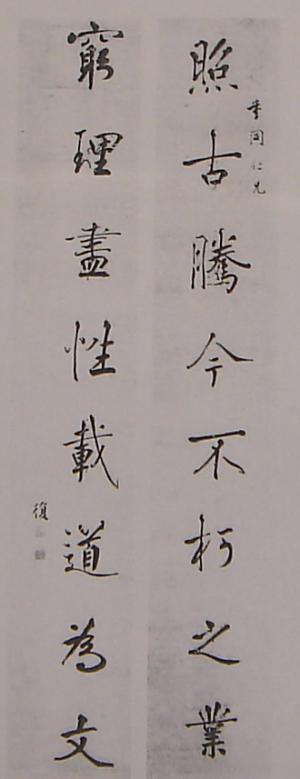 照古騰今不朽之業
仁兄
窮理盡性載道為文
復